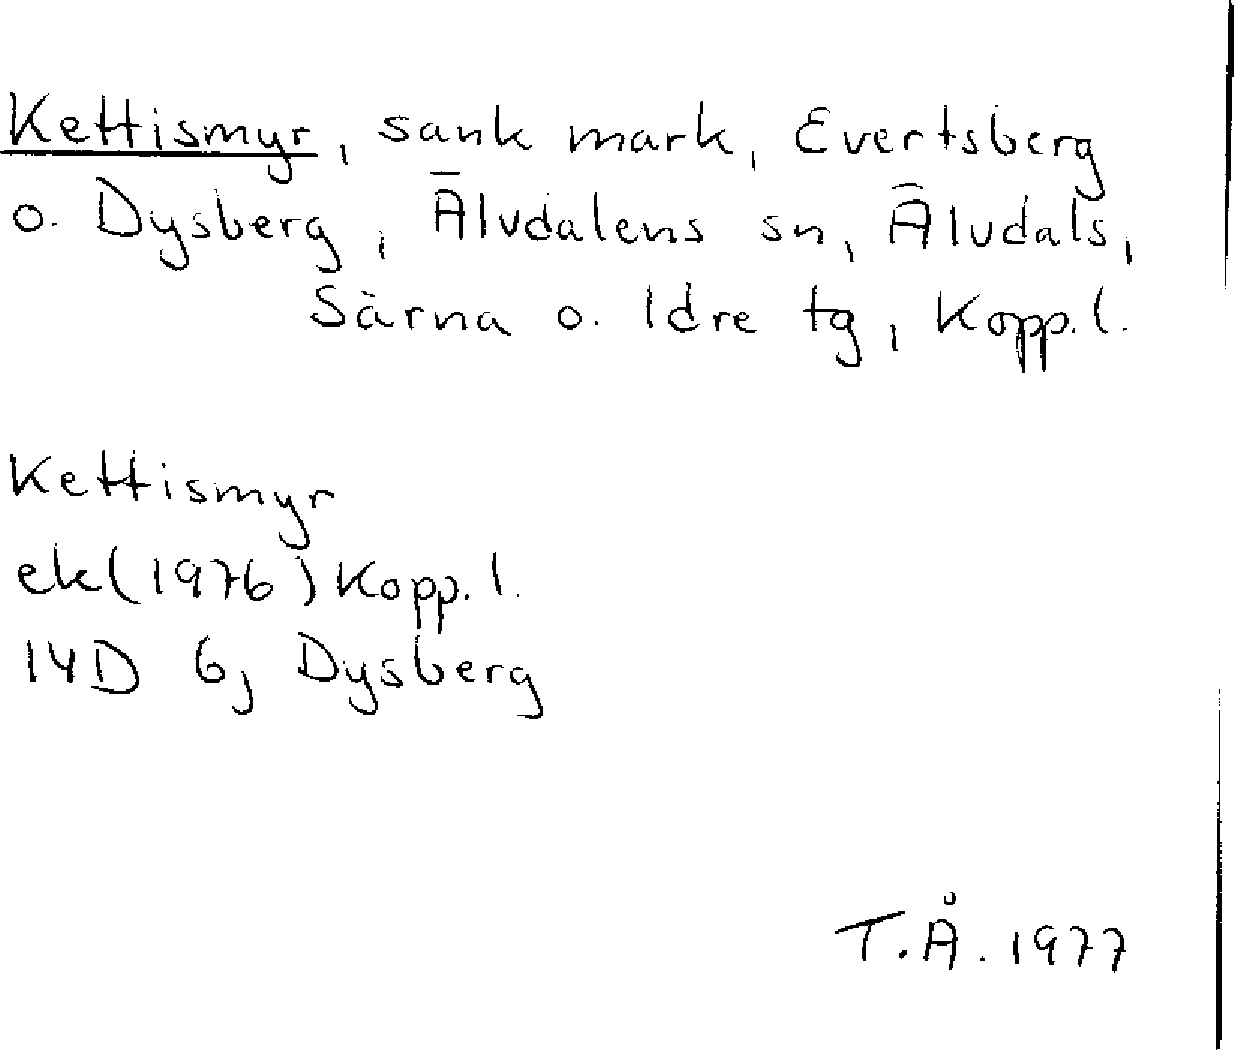 Kettismyr, sank mark, Evertsberg
o. Dysberg, Älvdalens sn, Älvdals,
Särna o. Idre tg, Kopp. l.
Kettismyr
ek (1976) Kopp. l.
14D 6j Dysberg
T.Å. 1977